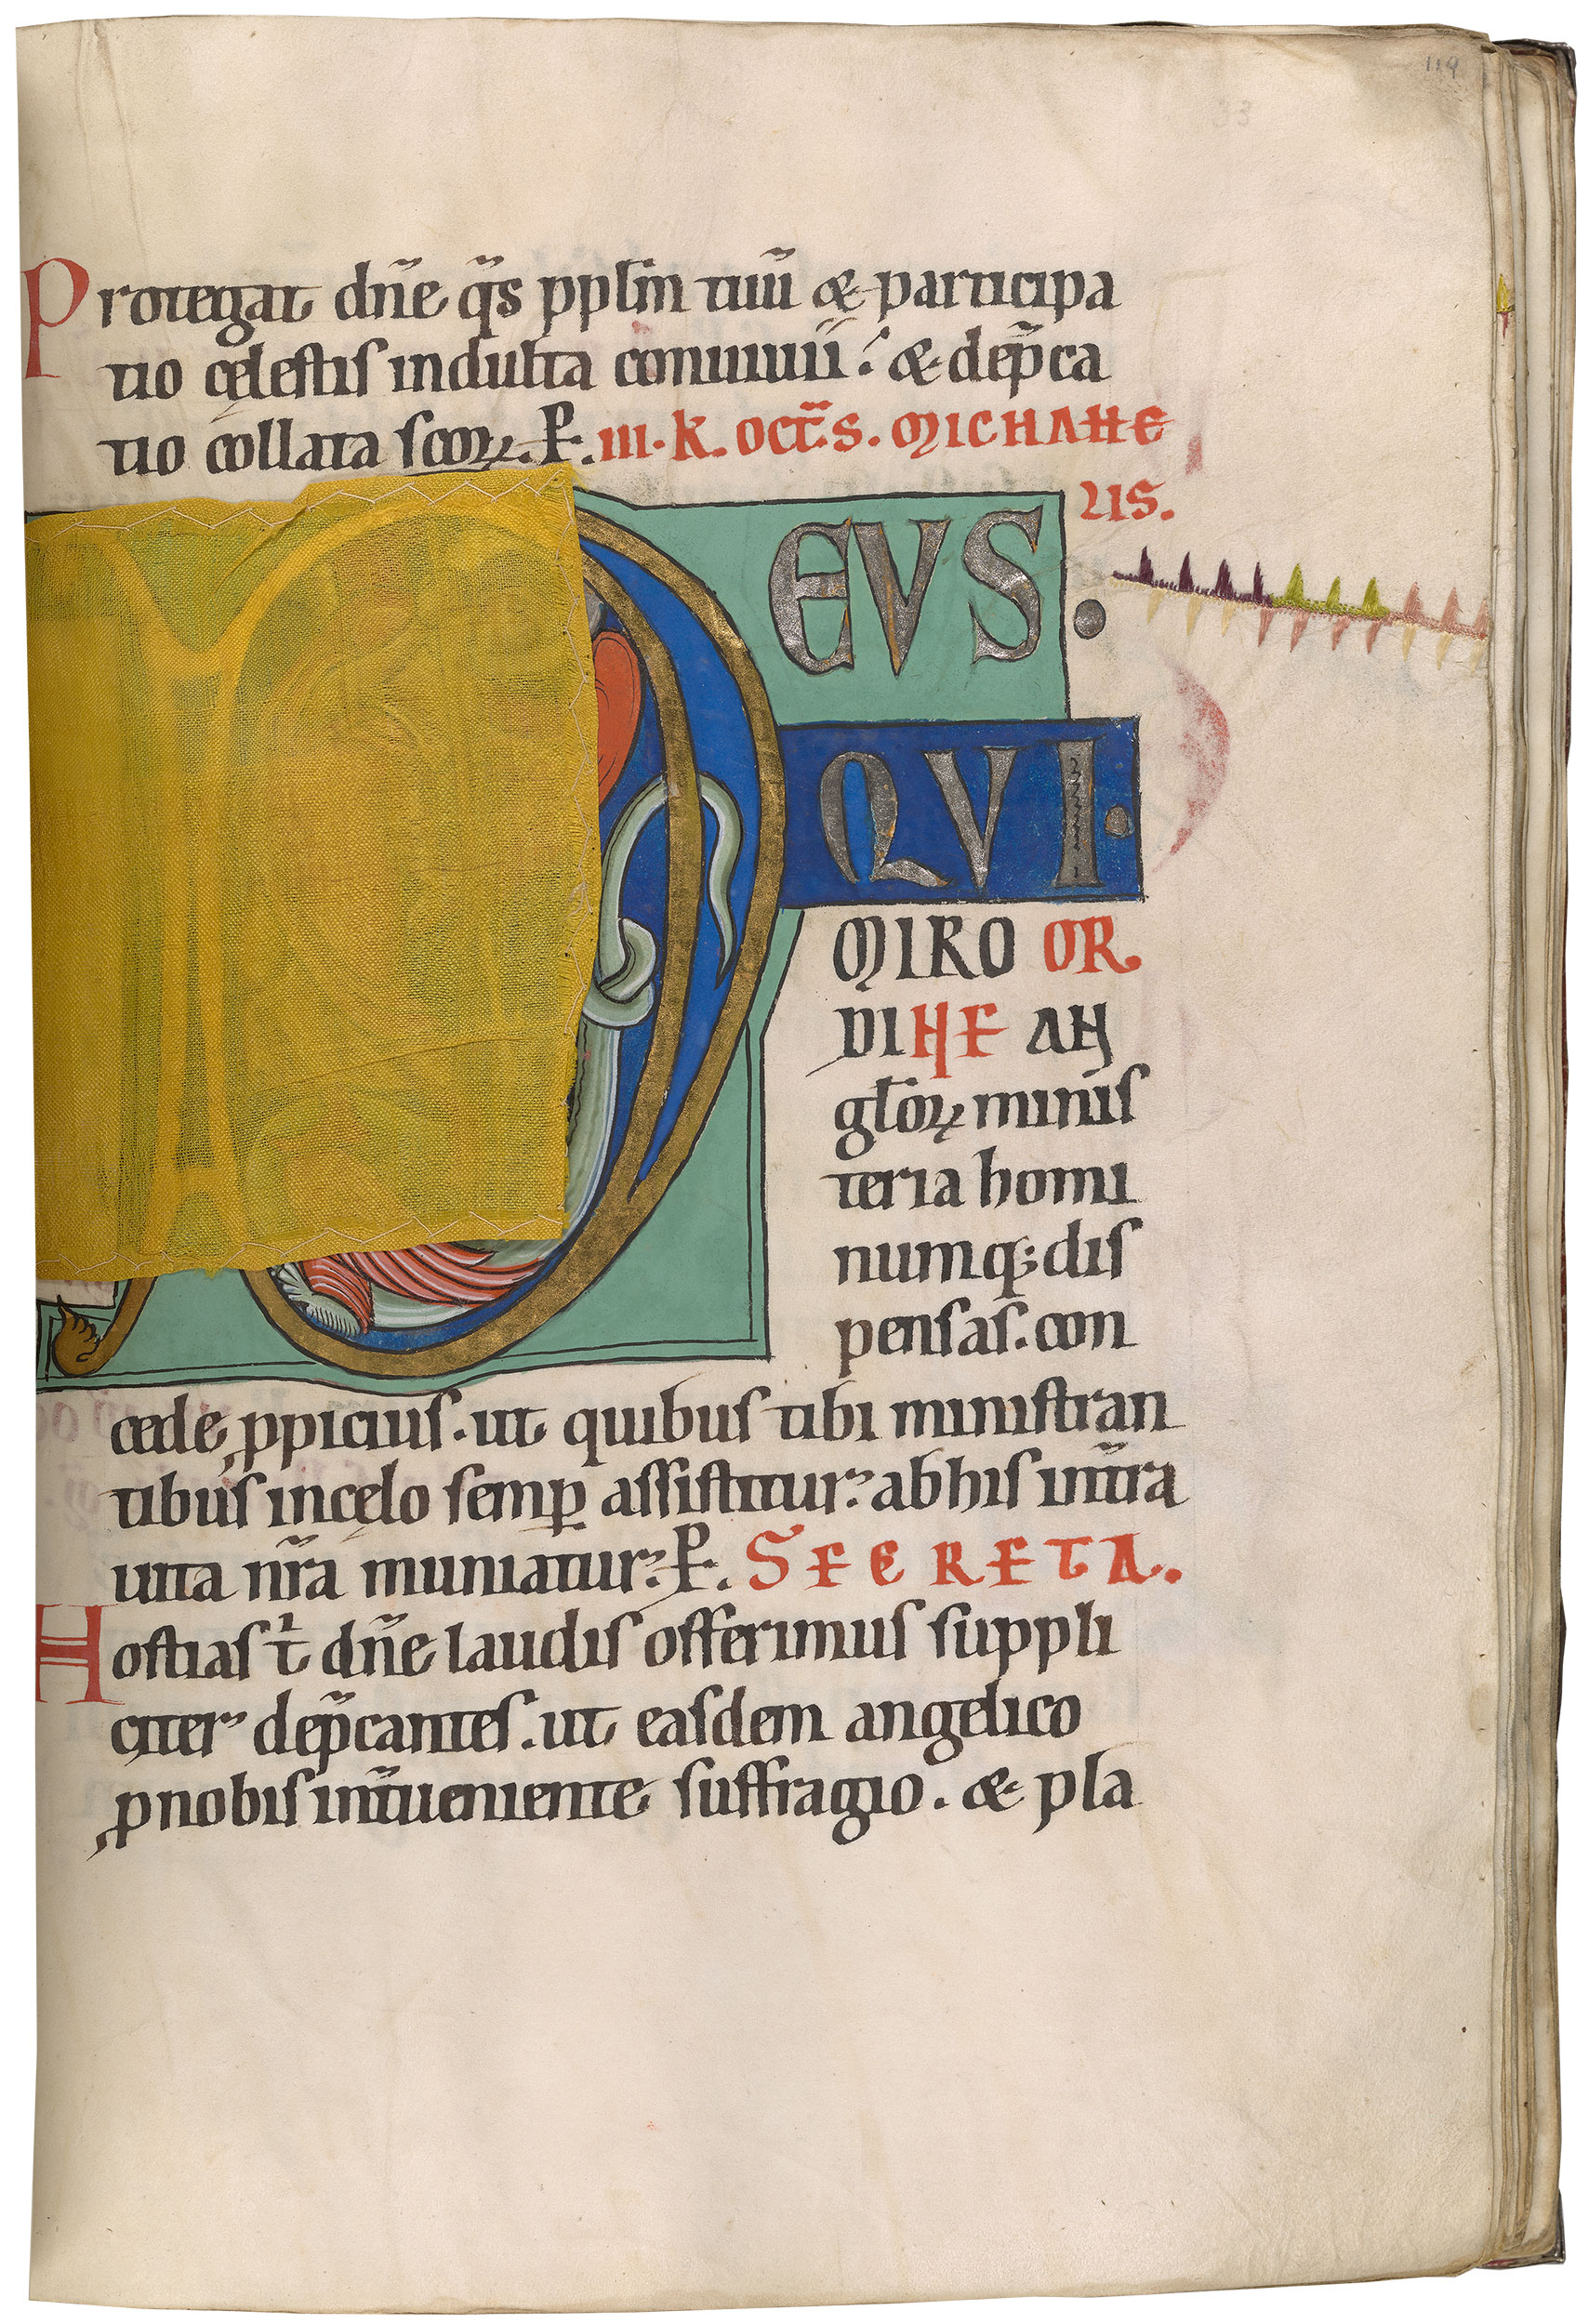 119
33
Protegat dn̄e q̄s pplm̄ tuū & participa
tio cęlestis indulta conuiuii: & dep̄ca
tio collata scoꝝ. P. III. K. OCT̄S. MICHAHE
LIS.
EVS.
QVI.
MIRO OR
DINE AN
gl̄oꝝ minis
teria homi
numq; dis
pensas. con
cede ꝓpicius. ut quibus tibi ministran
tibus in cęlo semꝑ assistitur: ab his in t̄ra
uita nr̄a muniatur. P. SECRETA.
Hostias t̄ dn̄e laudis offerimus suppli
citer dep̄cantes. ut easdem angelico
ꝓ nobis int̄ueniente suffragio. & pla